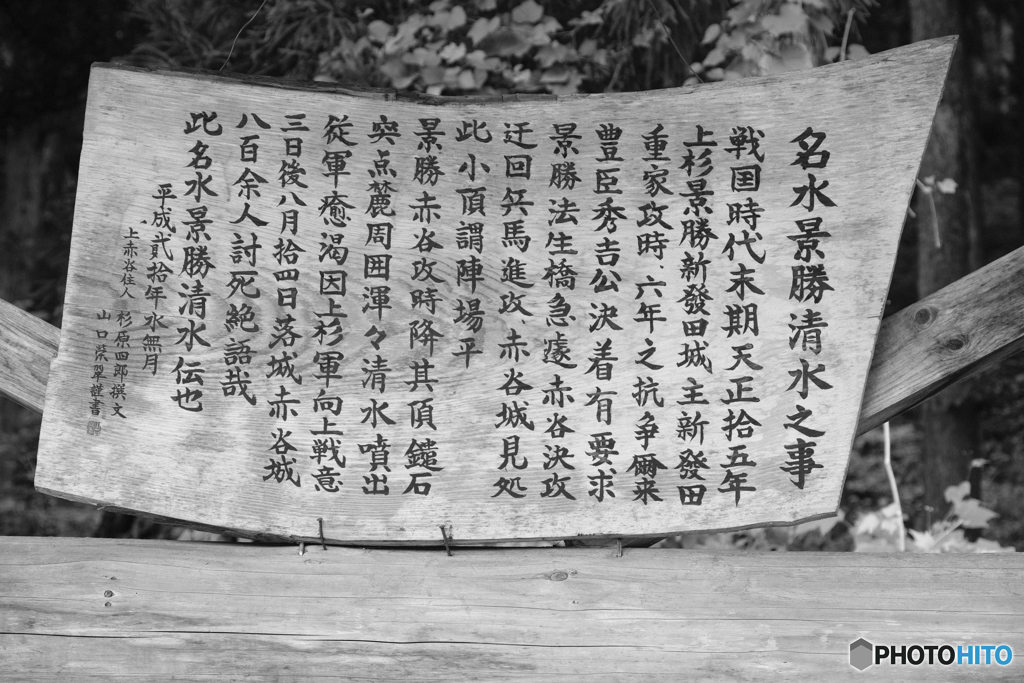 名水景勝清水之事
戦国時代末期天正拾五年
上杉景勝新發田城主新發田
重家攻時、六年之抗争爾来
豊臣秀吉公決着有要求
景勝法生橋急遽赤谷決攻
迂回兵馬進攻、赤谷城見処
此小頂謂陣場平
景勝赤谷攻時降其頂鑓石
突点麓周囲渾々清水噴出
従軍癒渇因上杉軍向上戦意
三日後八月拾四日落城赤谷城
八百余人討死絶語哉
此名水景勝清水伝也
平成貳拾年水無月
上赤谷住人 杉原四郎撰文
山口 翠謹書
PHOTOHITO